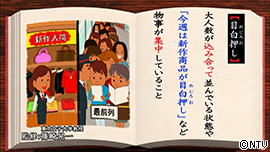 【目白押し】
めじろお
大人数が込み合って並んでいる状態や
めじろお
「今週は新作商品が目白押し」など
物事が集中していること
新作入荷
最前列
監修 篠崎晃一
©NTV